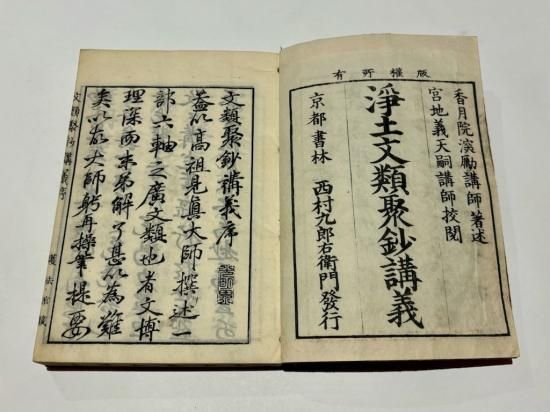 有所權版
香月院深勵講師著述
宮地義天嗣講師校閲
淨土文類聚鈔講義
京都書林　西村九郎右衛門發行
文類聚鈔講義序
蓋以高祖見眞大師撰述一
部六軸之廣文類也者文博
理深而末弟解了甚以為難
矣以故大師躬再操筆提要
文類聚鈔講義序